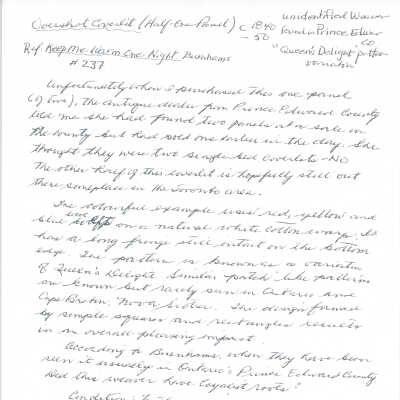 Overshot Coverlet (Half-One Panel) c 1840 - 50
unidentified Weaver
found in Prince Edward Co
"Queen's Delight" pattern variation
Ref Keep Me Warm One Night Burnhams
# 237
Unfortunately when I purchased this one panel
(of two), the antique dealer from Prince Edward County
told me she had found two panels at a sale in
the county but had sold one earlier in the day. She
thought they were two single bed coverlets - NO
The other half of this coverlet is hopefully still out
there someplace in the Toronto area.
This colourful example uses red, yellow and
blue wool wefts on a natural white cotton warp. It
has a long fringe still intact on the bottom
edge. The pattern is known as a variation
of Queen's Delight. Similar "patch" like patterns
are known but rarely seen in Ontario and
Cape Breton, Nova Scotia. The design formed
by simple squares and rectangles results
in an overall pleasing impact.
According to Burnhams, when they have been
seen it is usually in Ontario's Prince Edward County
Did this weaver have Loyalist roots?
Condition: